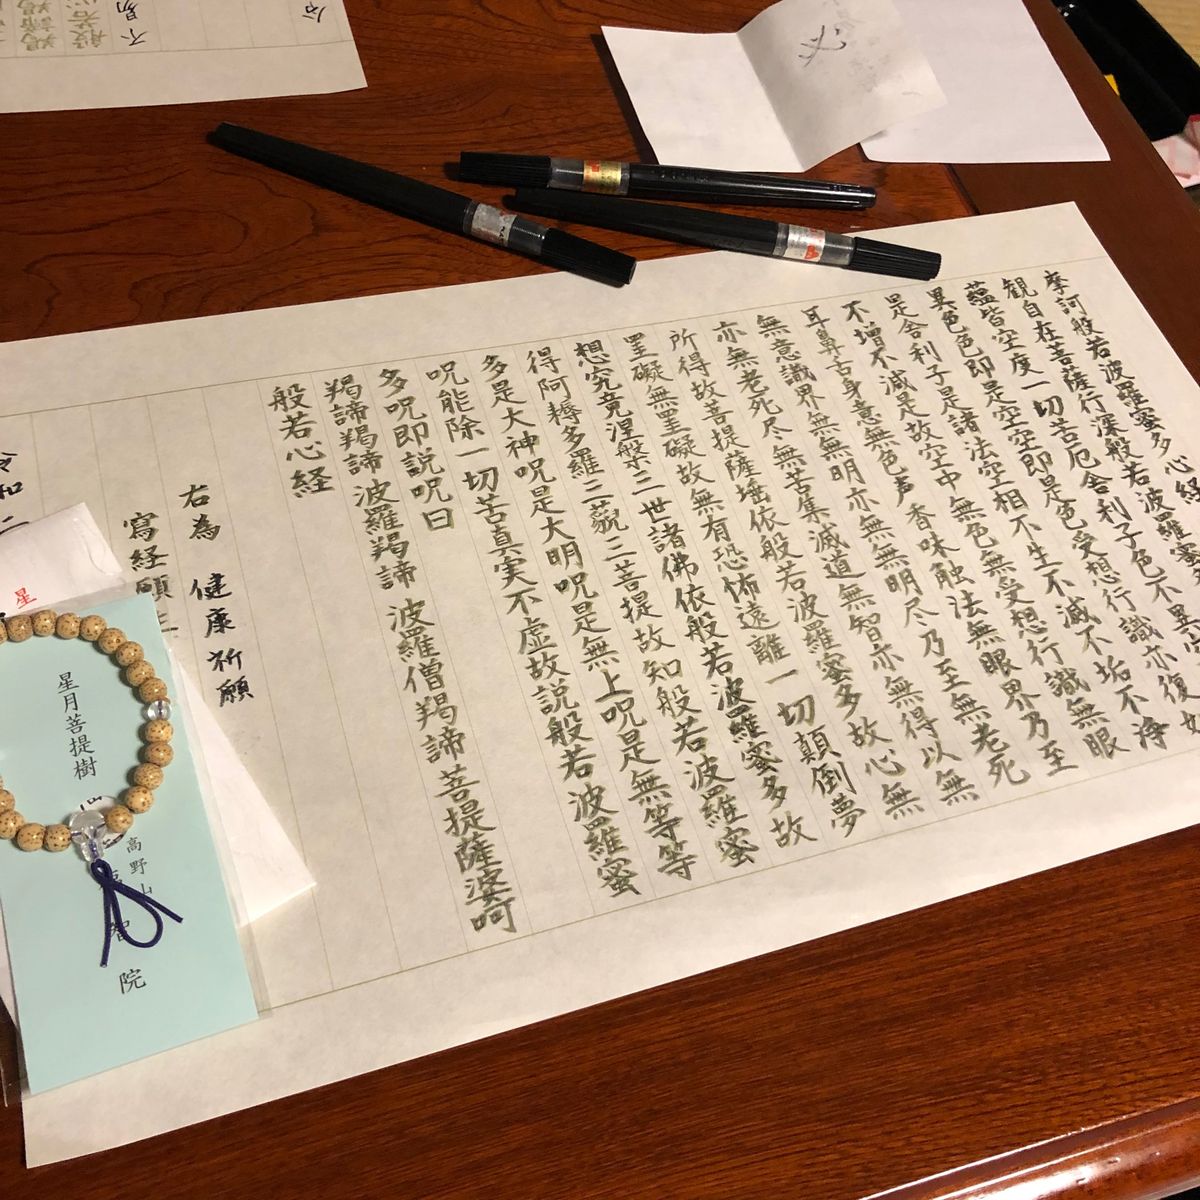 摩訶般若波羅蜜多心経
観自在菩薩行深般若波羅蜜多
蘊皆空度一切苦厄舎利子色不異空
異色色即是空空即是色受想行識亦復如
是舎利子是諸法空相不生不滅不垢不浄
不増不減是故空中無色無受想行識無眼
耳鼻舌身意無色声香味触法無眼界乃至
無意識界無無明亦無無明尽乃至無老死
亦無老死尽無苦集滅道無智亦無得以無
所得故菩提薩埵依般若波羅蜜多故心無
罣礙無罣礙故無有恐怖遠離一切顛倒夢
想究竟涅槃三世諸佛依般若波羅蜜多故
得阿耨多羅三藐三菩提故知般若波羅蜜
多是大神呪是大明呪是無上呪是無等等
呪能除一切苦真実不虚故説般若波羅蜜
多呪即説呪曰
羯諦羯諦 波羅羯諦 波羅僧羯諦菩提薩婆呵
般若心経
右為 健康祈願
寫経願主
令和二
星
星月菩提樹
高野山
智院